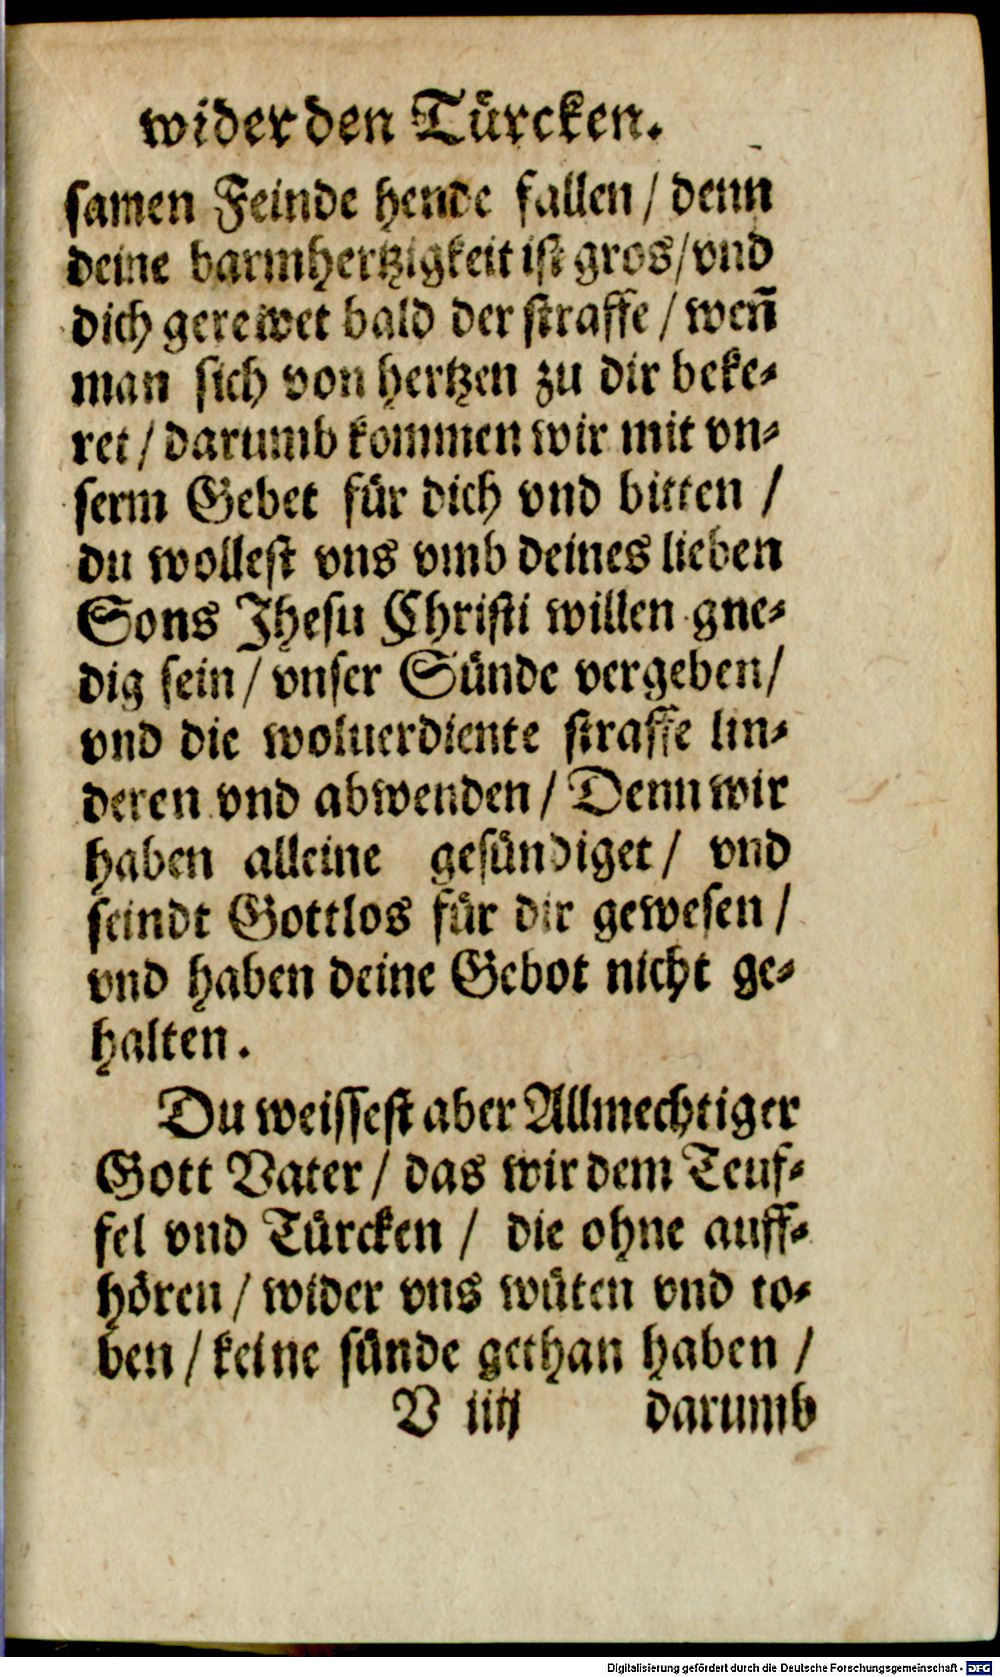 wider den Türcken.
samen Feinde hende fallen / denn
deine barmhertzigkeit ist gros / vnd
dich gerewet bald der straffe / weñ
man sich von hertzen zu dir beke-
ret / darumb kommen wir mit vn-
serm Gebet für dich vnd bitten /
du wollest vns vmb deines lieben
Sons Jhesu Christi willen gne-
dig sein / vnser Sünde vergeben /
vnd die woluerdiente straffe lin-
deren vnd abwenden / Denn wir
haben alleine gesündiget / vnd
seindt Gottlos für dir gewesen /
vnd haben deine Gebot nicht ge-
halten.
Du weissest aber Allmechtiger
Gott Vater / das wir dem Teuf-
fel vnd Türcken / die ohne auff-
hören / wider vns wüten vnd to-
ben / keine sünde gethan haben /
V iiij darumb
Digitalisierung gefördert durch die Deutsche Forschungsgemeinschaft - DFG